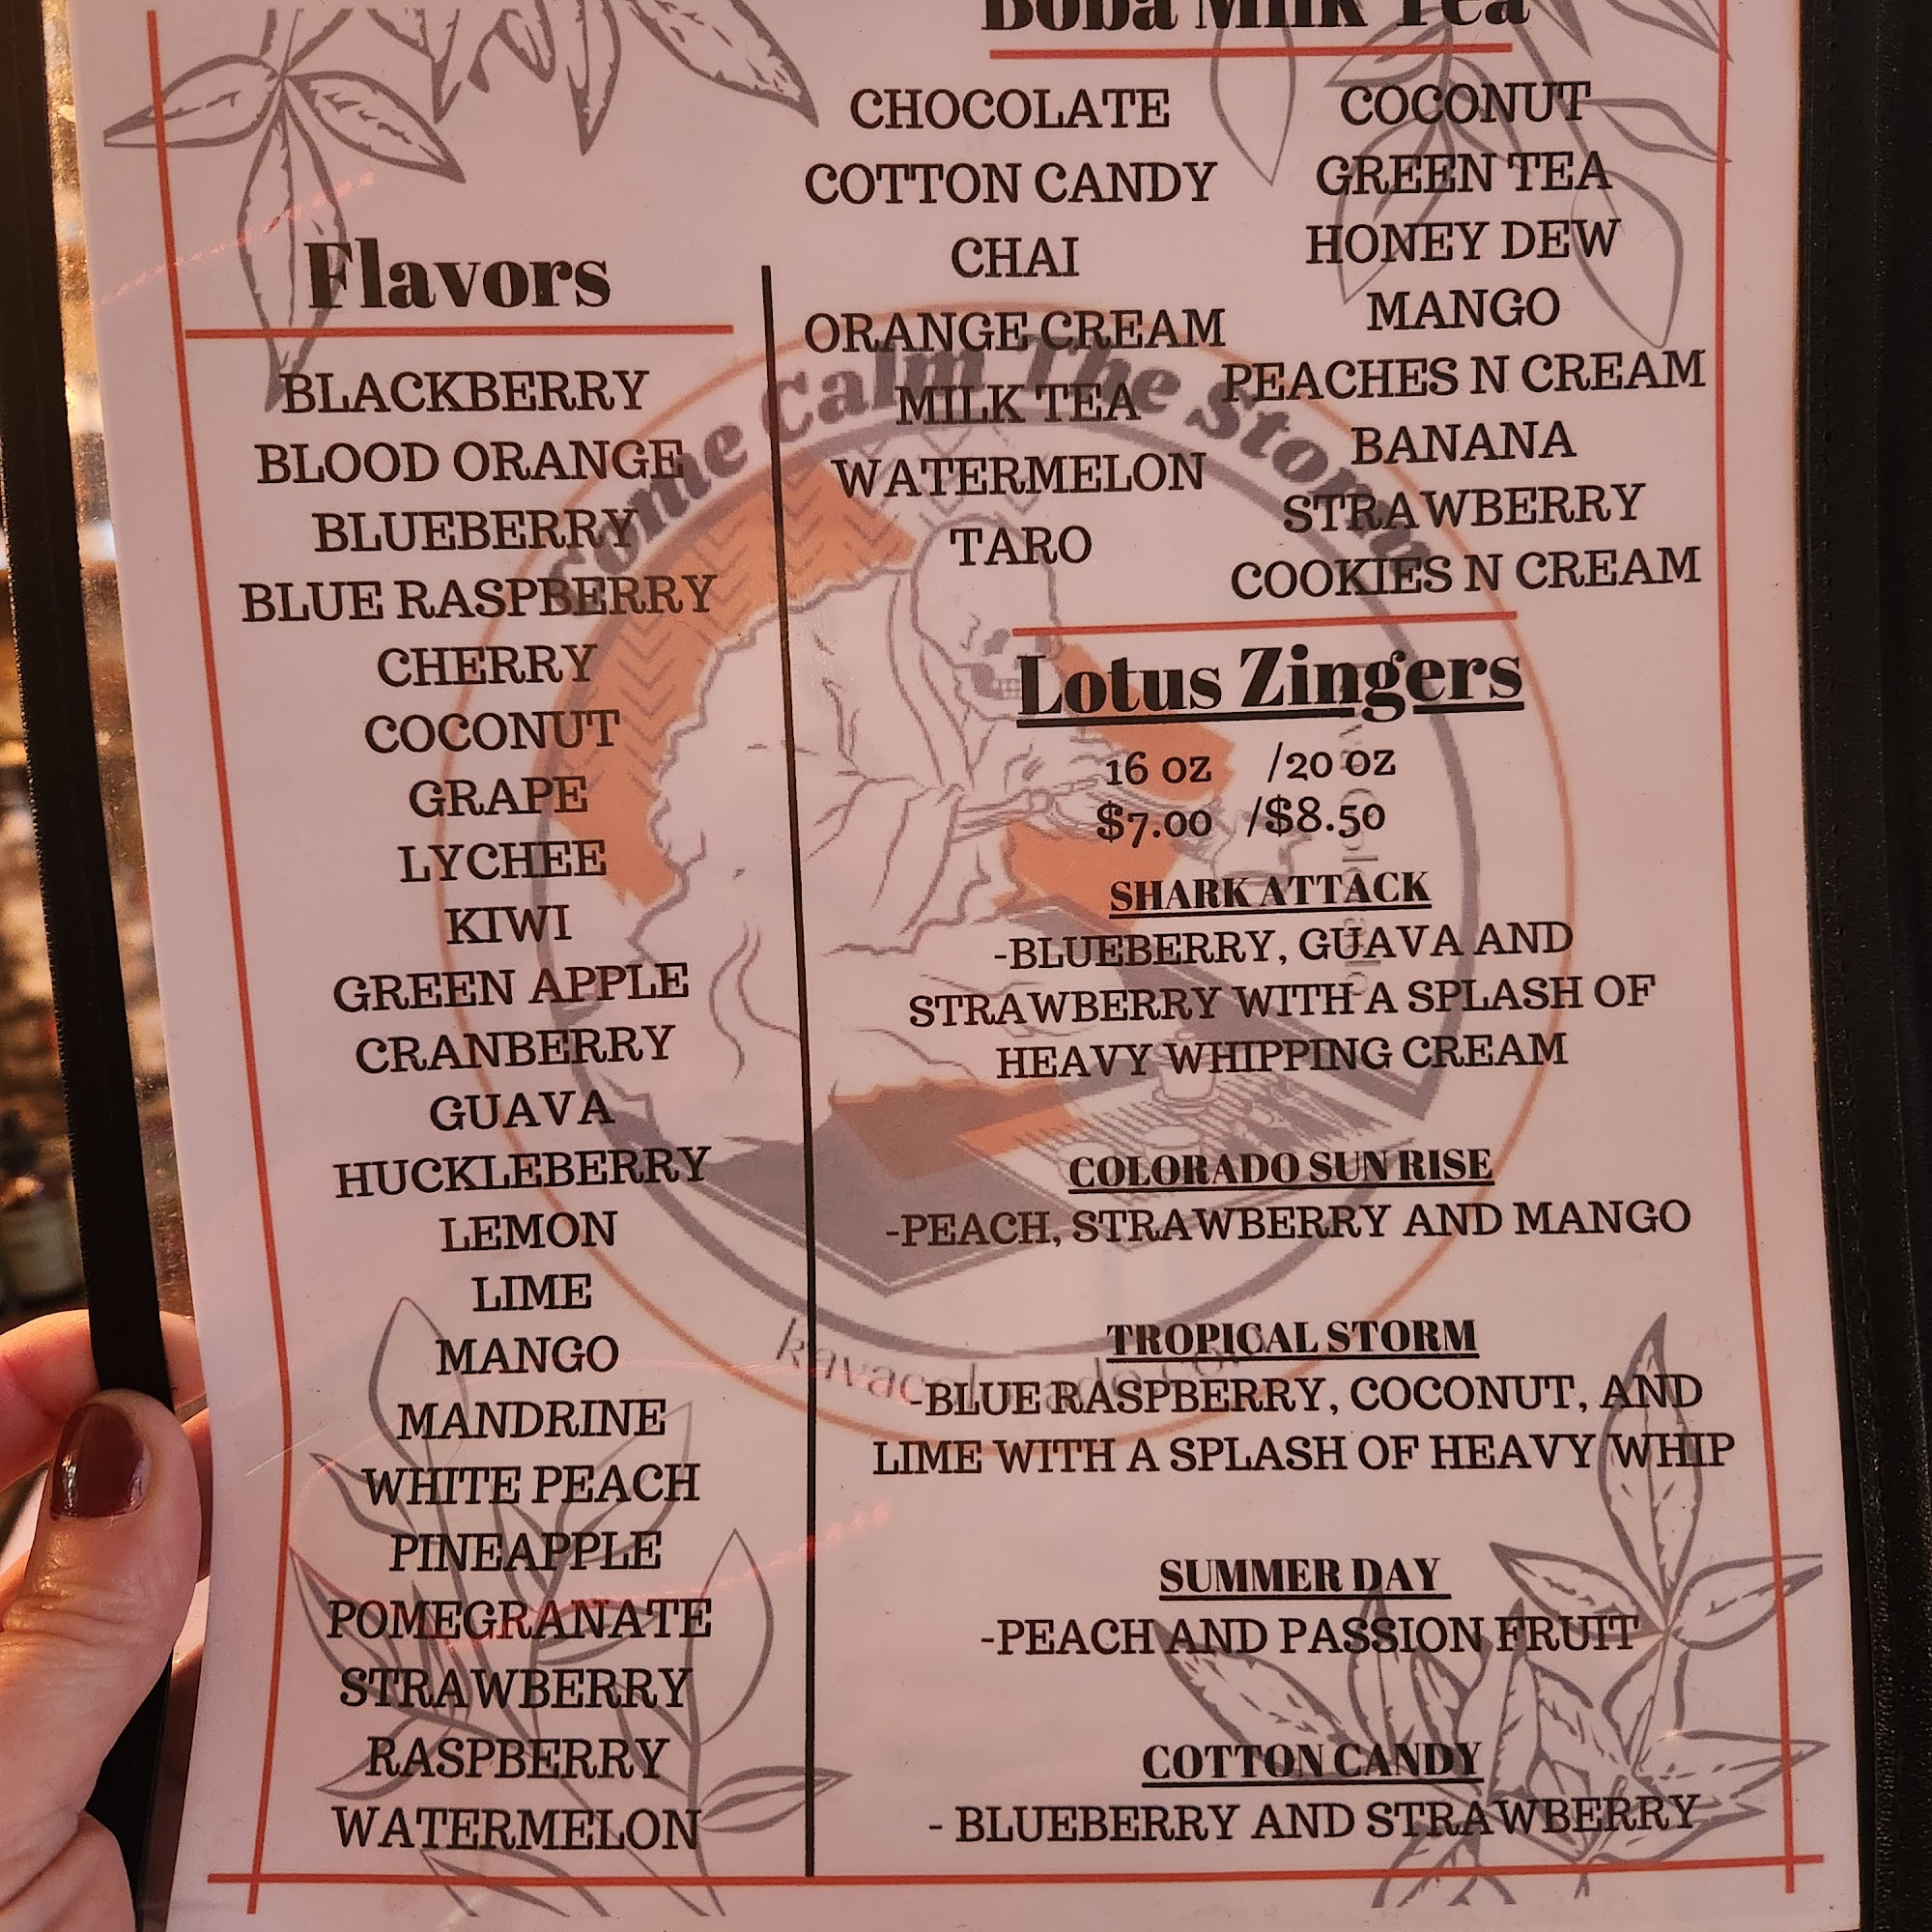 Flavors
BLACKBERRY
BLOOD ORANGE
BLUEBERRY
BLUE RASPBERRY
CHERRY
COCONUT
GRAPE
LYCHEE
KIWI
GREEN APPLE
CRANBERRY
GUAVA
HUCKLEBERRY
LEMON
LIME
MANGO
MANDRINE
WHITE PEACH
PINEAPPLE
POMEGRANATE
STRAWBERRY
RASPBERRY
WATERMELON
Boba Milk Tea
CHOCOLATE
COTTON CANDY
CHAI
ORANGE CREAM
MILK TEA
WATERMELON
TARO
COCONUT
GREEN TEA
HONEY DEW
MANGO
PEACHES N CREAM
BANANA
STRAWBERRY
COOKIES N CREAM
Lotus Zingers
16 OZ /20 OZ
$7.00 /$8.50
SHARK ATTACK
-BLUEBERRY, GUAVA AND
STRAWBERRY WITH A SPLASH OF
HEAVY WHIPPING CREAM
COLORADO SUN RISE
-PEACH, STRAWBERRY AND MANGO
TROPICAL STORM
-BLUE RASPBERRY, COCONUT, AND
LIME WITH A SPLASH OF HEAVY WHIP
SUMMER DAY
-PEACH AND PASSION FRUIT
COTTON CANDY
- BLUEBERRY AND STRAWBERRY
Come Calm The Storm